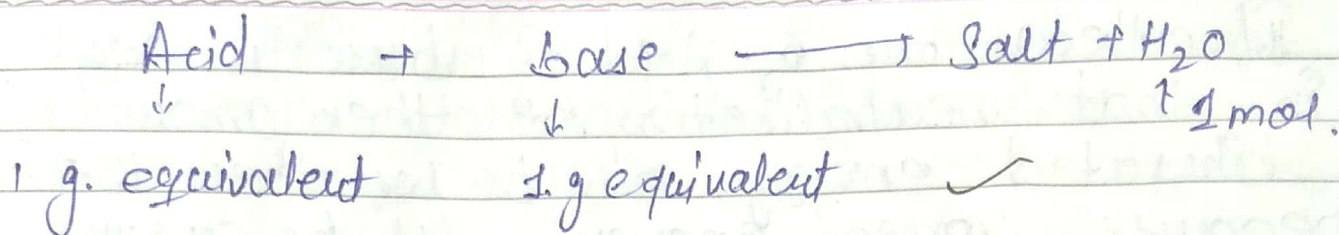 Acid + base ⟶ Salt + H₂O
↓ ↓ ↑ 1 mol.
1 g. equivalent 1. g equivalent ✓